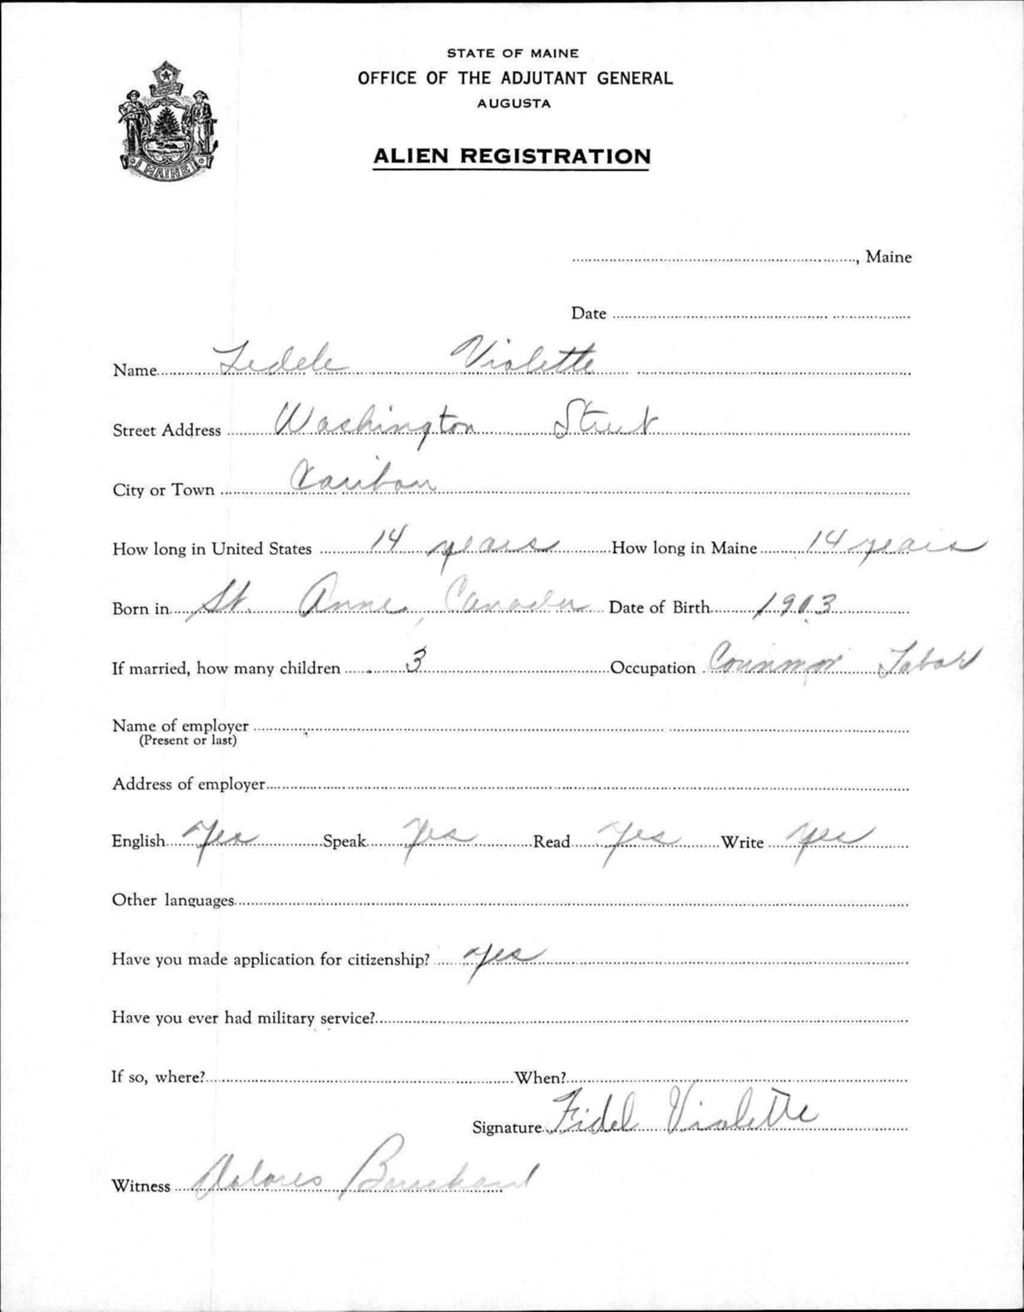 STATE OF MAINE
OFFICE OF THE ADJUTANT GENERAL
AUGUSTA
ALIEN REGISTRATION
MAINE
, Maine
Date
Name Fedele Violette
Street Address Washington Street
City or Town Caribou
How long in United States 14 years How long in Maine 14 years
Born in St. Anne, Canada Date of Birth 1903
If married, how many children 3 Occupation Common Labor
Name of employer
(Present or last)
Address of employer
English Yes Speak Yes Read Yes Write Yes
Other languages
Have you made application for citizenship? Yes
Have you ever had military service?
If so, where? When?
Signature Fidel Violette
Witness Dolores Bouchard